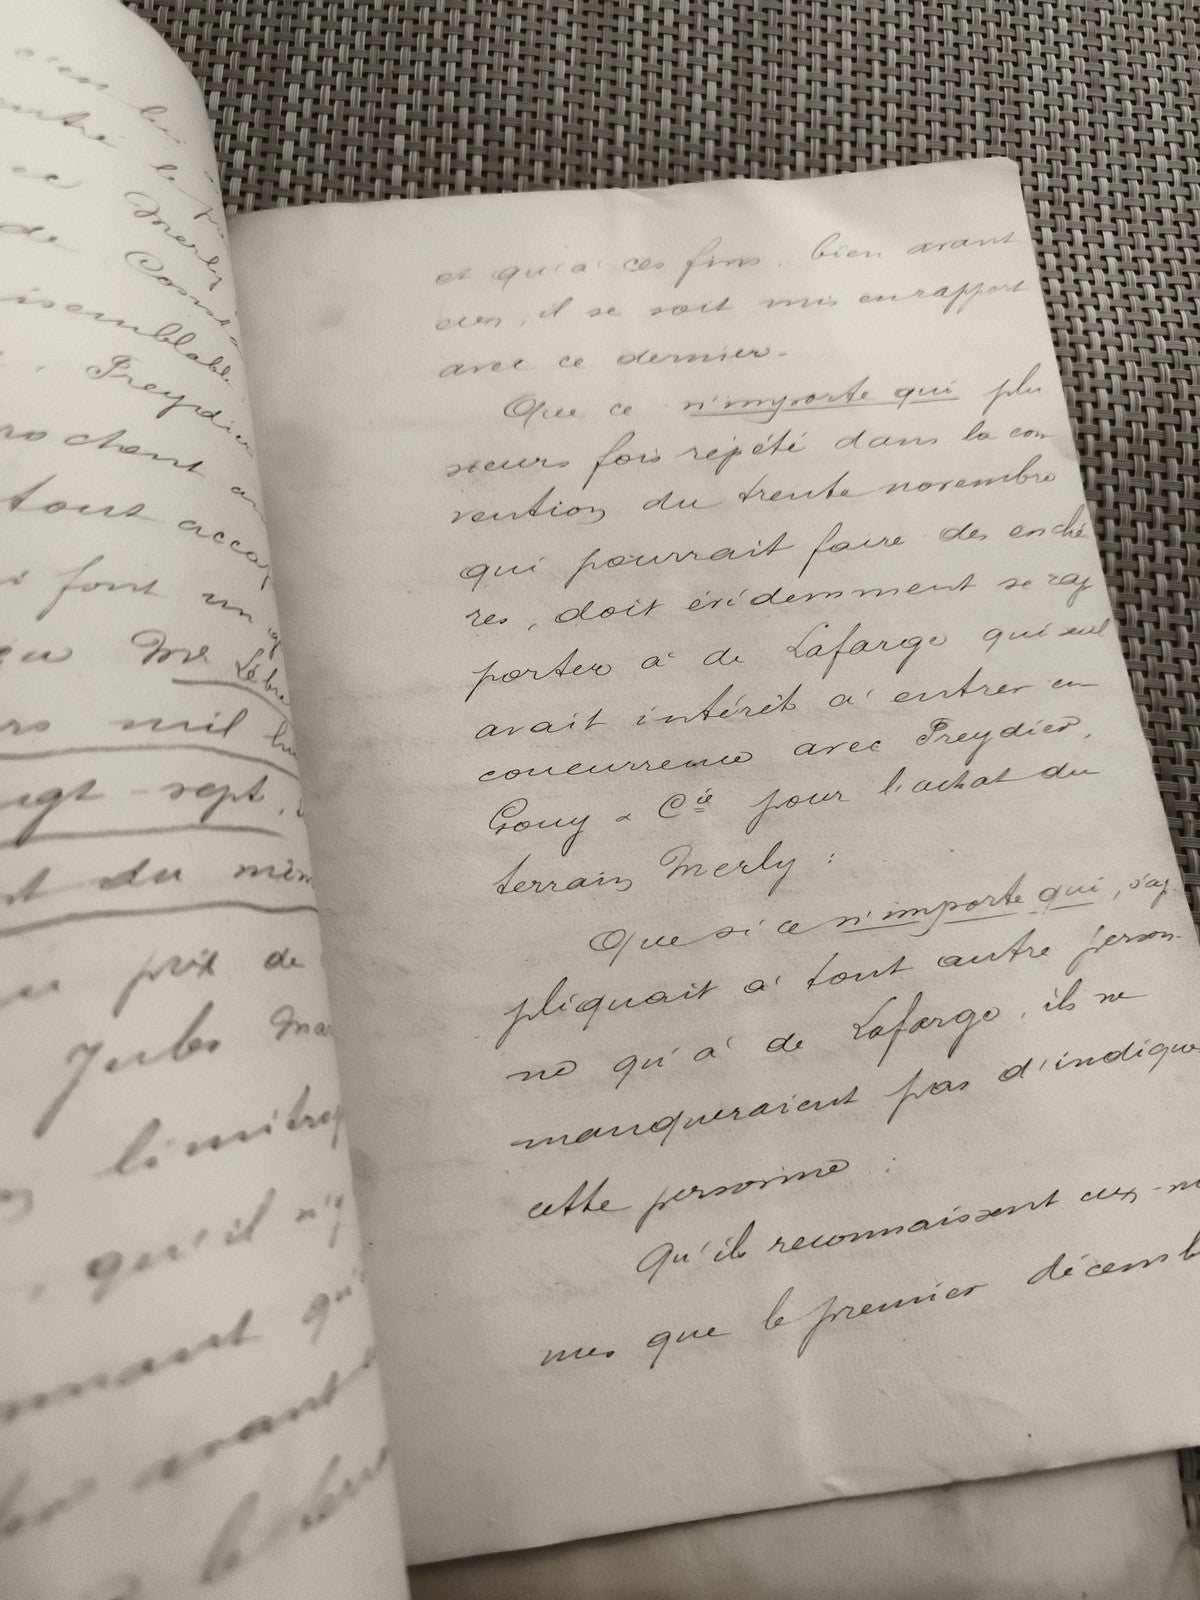 ce Merly
de
isemblable
Freydier
tout
i font un
Me Lèbre
mil
ngt-sept,
nt du mêm
prix de
Jules Ma
limitrop
, qu'il n'y
avant
le
et qu'à ces fins, bien avant
eux, il se soit mis en rapport
avec ce dernier.
Que ce n'importe qui plu
sieurs fois répété dans la con
vention du trente novembre
qui pourrait faire des enchè
res, doit évidemment se rap
porter à de Lafarge qui seul
avait intérêt à entrer en
concurrence avec Freydier,
Gouy & Cie pour l'achat du
terrain Merly :
Que si ce n'importe qui, s'ap
pliquait à tout autre person
ne qu'à de Lafarge, ils ne
manqueraient pas d'indique
cette personne :
Qu'ils reconnaissent eux-mê
mes que le premier décemb